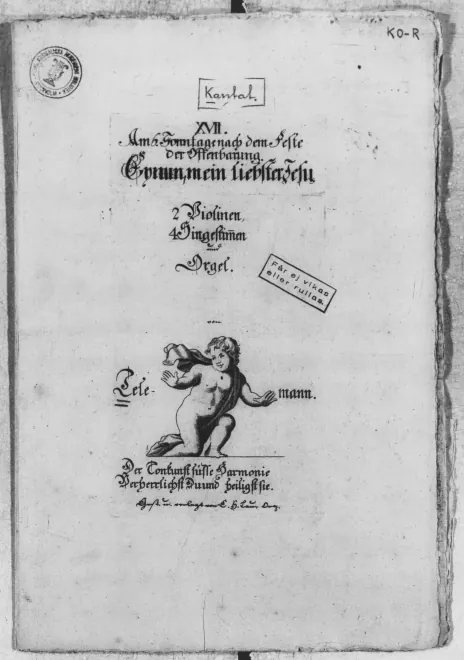 KO-R
Kantat.
XVII.
Am 2. Sonntage nach dem Feste
der Offenbarung.
mein liebster Jesu
2 Violinen
4 Singestimen
und
Orgel.
Får ej vikas
eller rullas.
von
Tele- mann.
Der Tonkunst süsse Harmonie
Verherrlichst Du und heiligst sie.